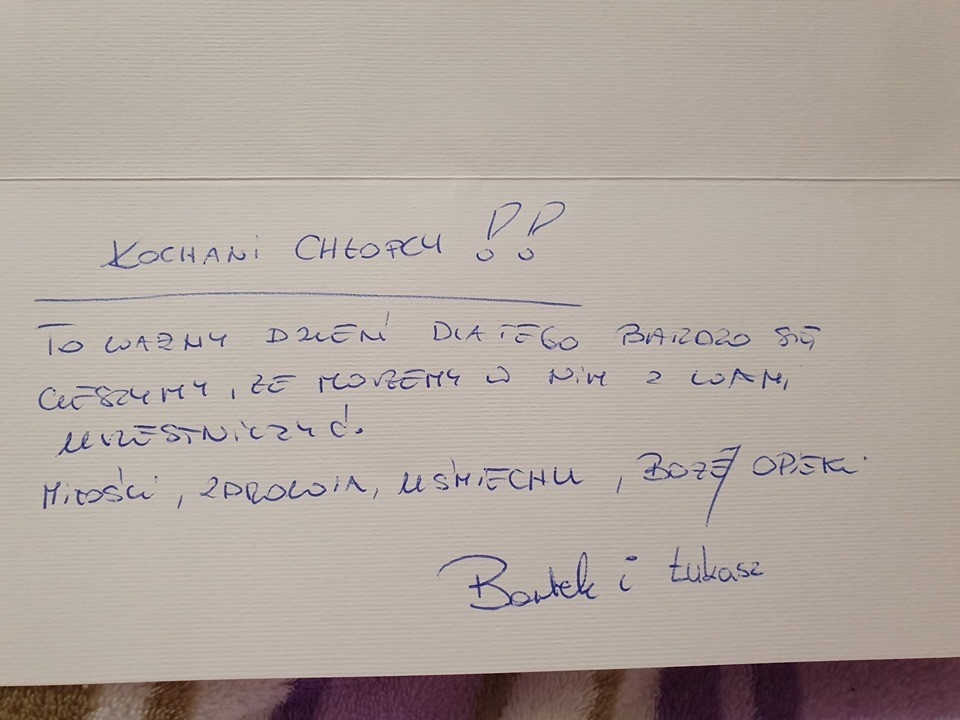 KOCHANI CHŁOPCY !!
TO WAŻNY DZIEŃ DLATEGO BARDZO SIĘ
CIESZYMY, ŻE MOŻEMY W NIM Z WAMI
UCZESTNICZYĆ.
MIŁOŚCI, ZDROWIA, UŚMIECHU, BOŻEJ OPIEKI.
Bartek i Łukasz